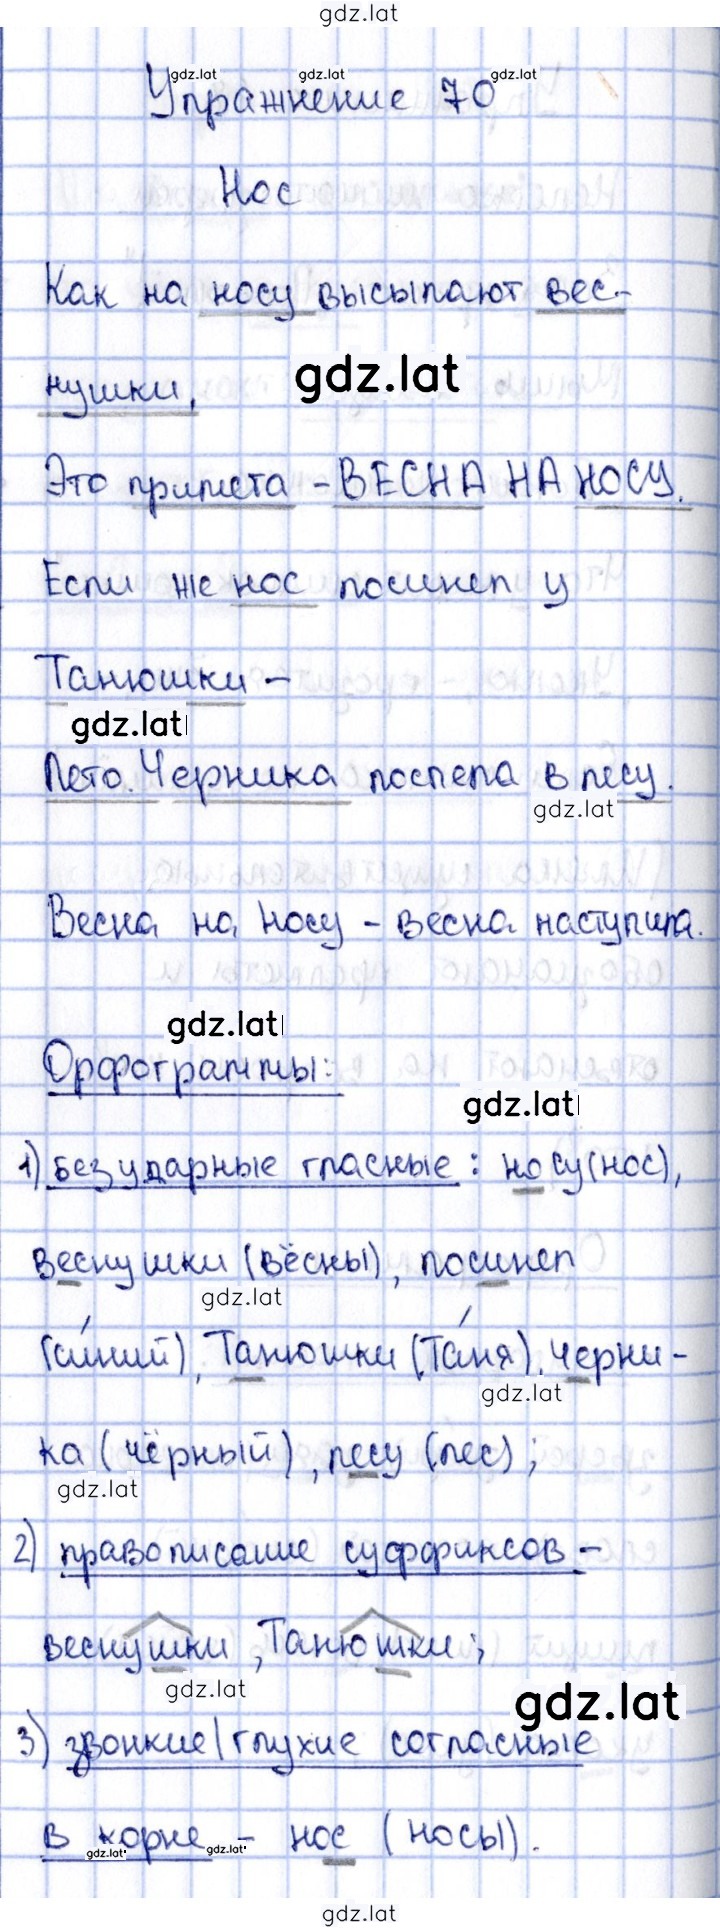 gdz.lat
gdz.lat gdz.lat gdz.lat
Упражнение 70
Нос
Как на носу высыпают вес-
gdz.lat
нушки,
Это примета - ВЕСНА НА НОСУ.
Если же нос посинел у
Танюшки -
gdz.lat
Лето. Черника поспела в лесу.
gdz.lat
Весна на носу - весна наступила.
gdz.lat
Орфограммы:
gdz.lat
1) безударные гласные: носу (нос),
веснушки (вёсны), посинел
gdz.lat
(си́ний), Танюшки (Та́ня), черни-
gdz.lat
ка (чёрный), лесу (лес);
gdz.lat
2) правописание суффиксов -
веснушки, Танюшки;
gdz.lat
gdz.lat
3) звонкие/глухие согласные
в корне - нос (носы).
gdz.lat gdz.lat
gdz.lat